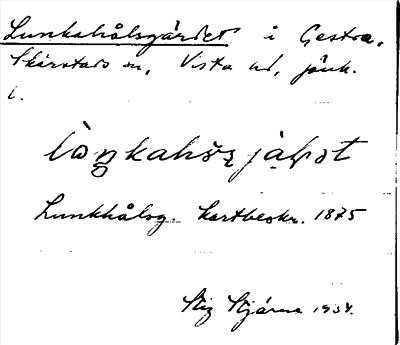 Lunkahålsgärdet i Gestra,
Skärstads sn, Vista hd, Jönk.
l.
Lunkhålsg. kartbeskr. 1875
Stig Stjärna 1934.